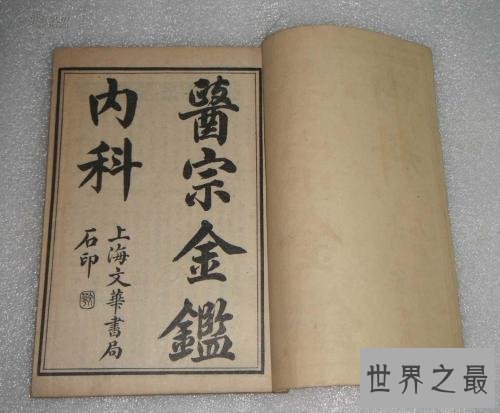 醫宗金鑑
内科
上海文華書局
石印
世界之最